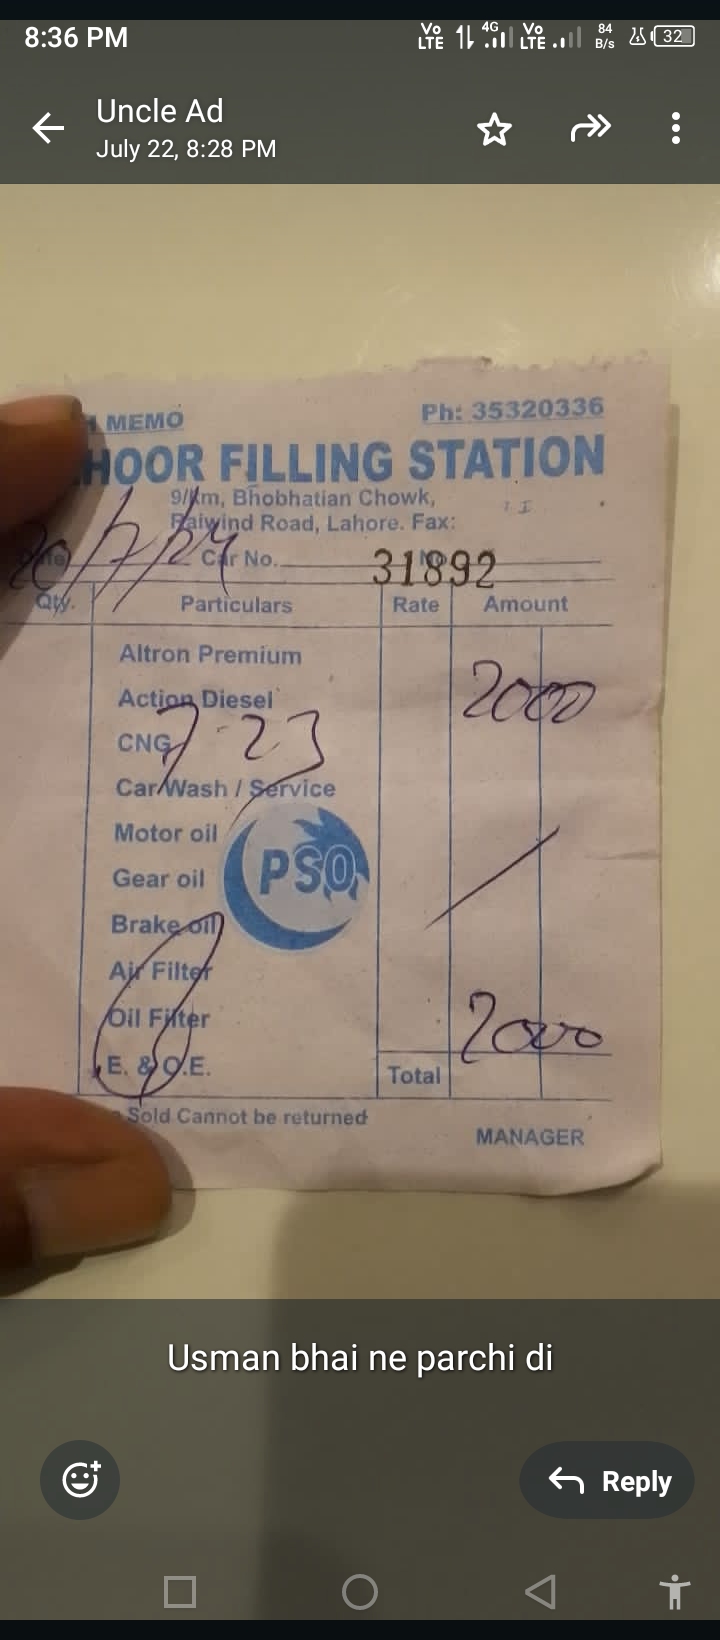 8:36 PM
Vo LTE 4G Vo LTE 84 B/s 32
Uncle Ad
July 22, 8:28 PM
MEMO Ph: 35320336
HOOR FILLING STATION
9/Km, Bhobhatian Chowk,
Raiwind Road, Lahore. Fax:
Car No. 31892
Qty. Particulars Rate Amount
Altron Premium
Action Diesel 2000
CNG 7-23
Car Wash / Service
Motor oil
PSO
Gear oil
Brake oil
Air Filter
Oil Filter 2000
E. & O.E. Total
Sold Cannot be returned
MANAGER
Usman bhai ne parchi di
Reply